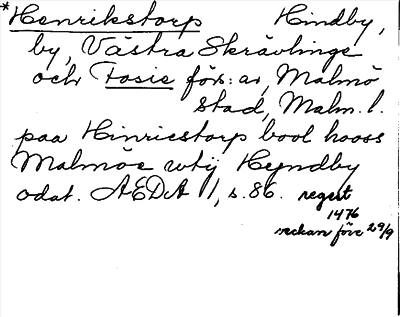 *Henrikstorp Hindby,
by, Västra Skrävlinge
och Fosie förs:ar, Malmö
stad, Malm. l.
paa Hinricstorp bool hooss
Malmöe wtij Heyndby
odat. AEDA 1, s. 86. regest
1476
veckan före 29/9